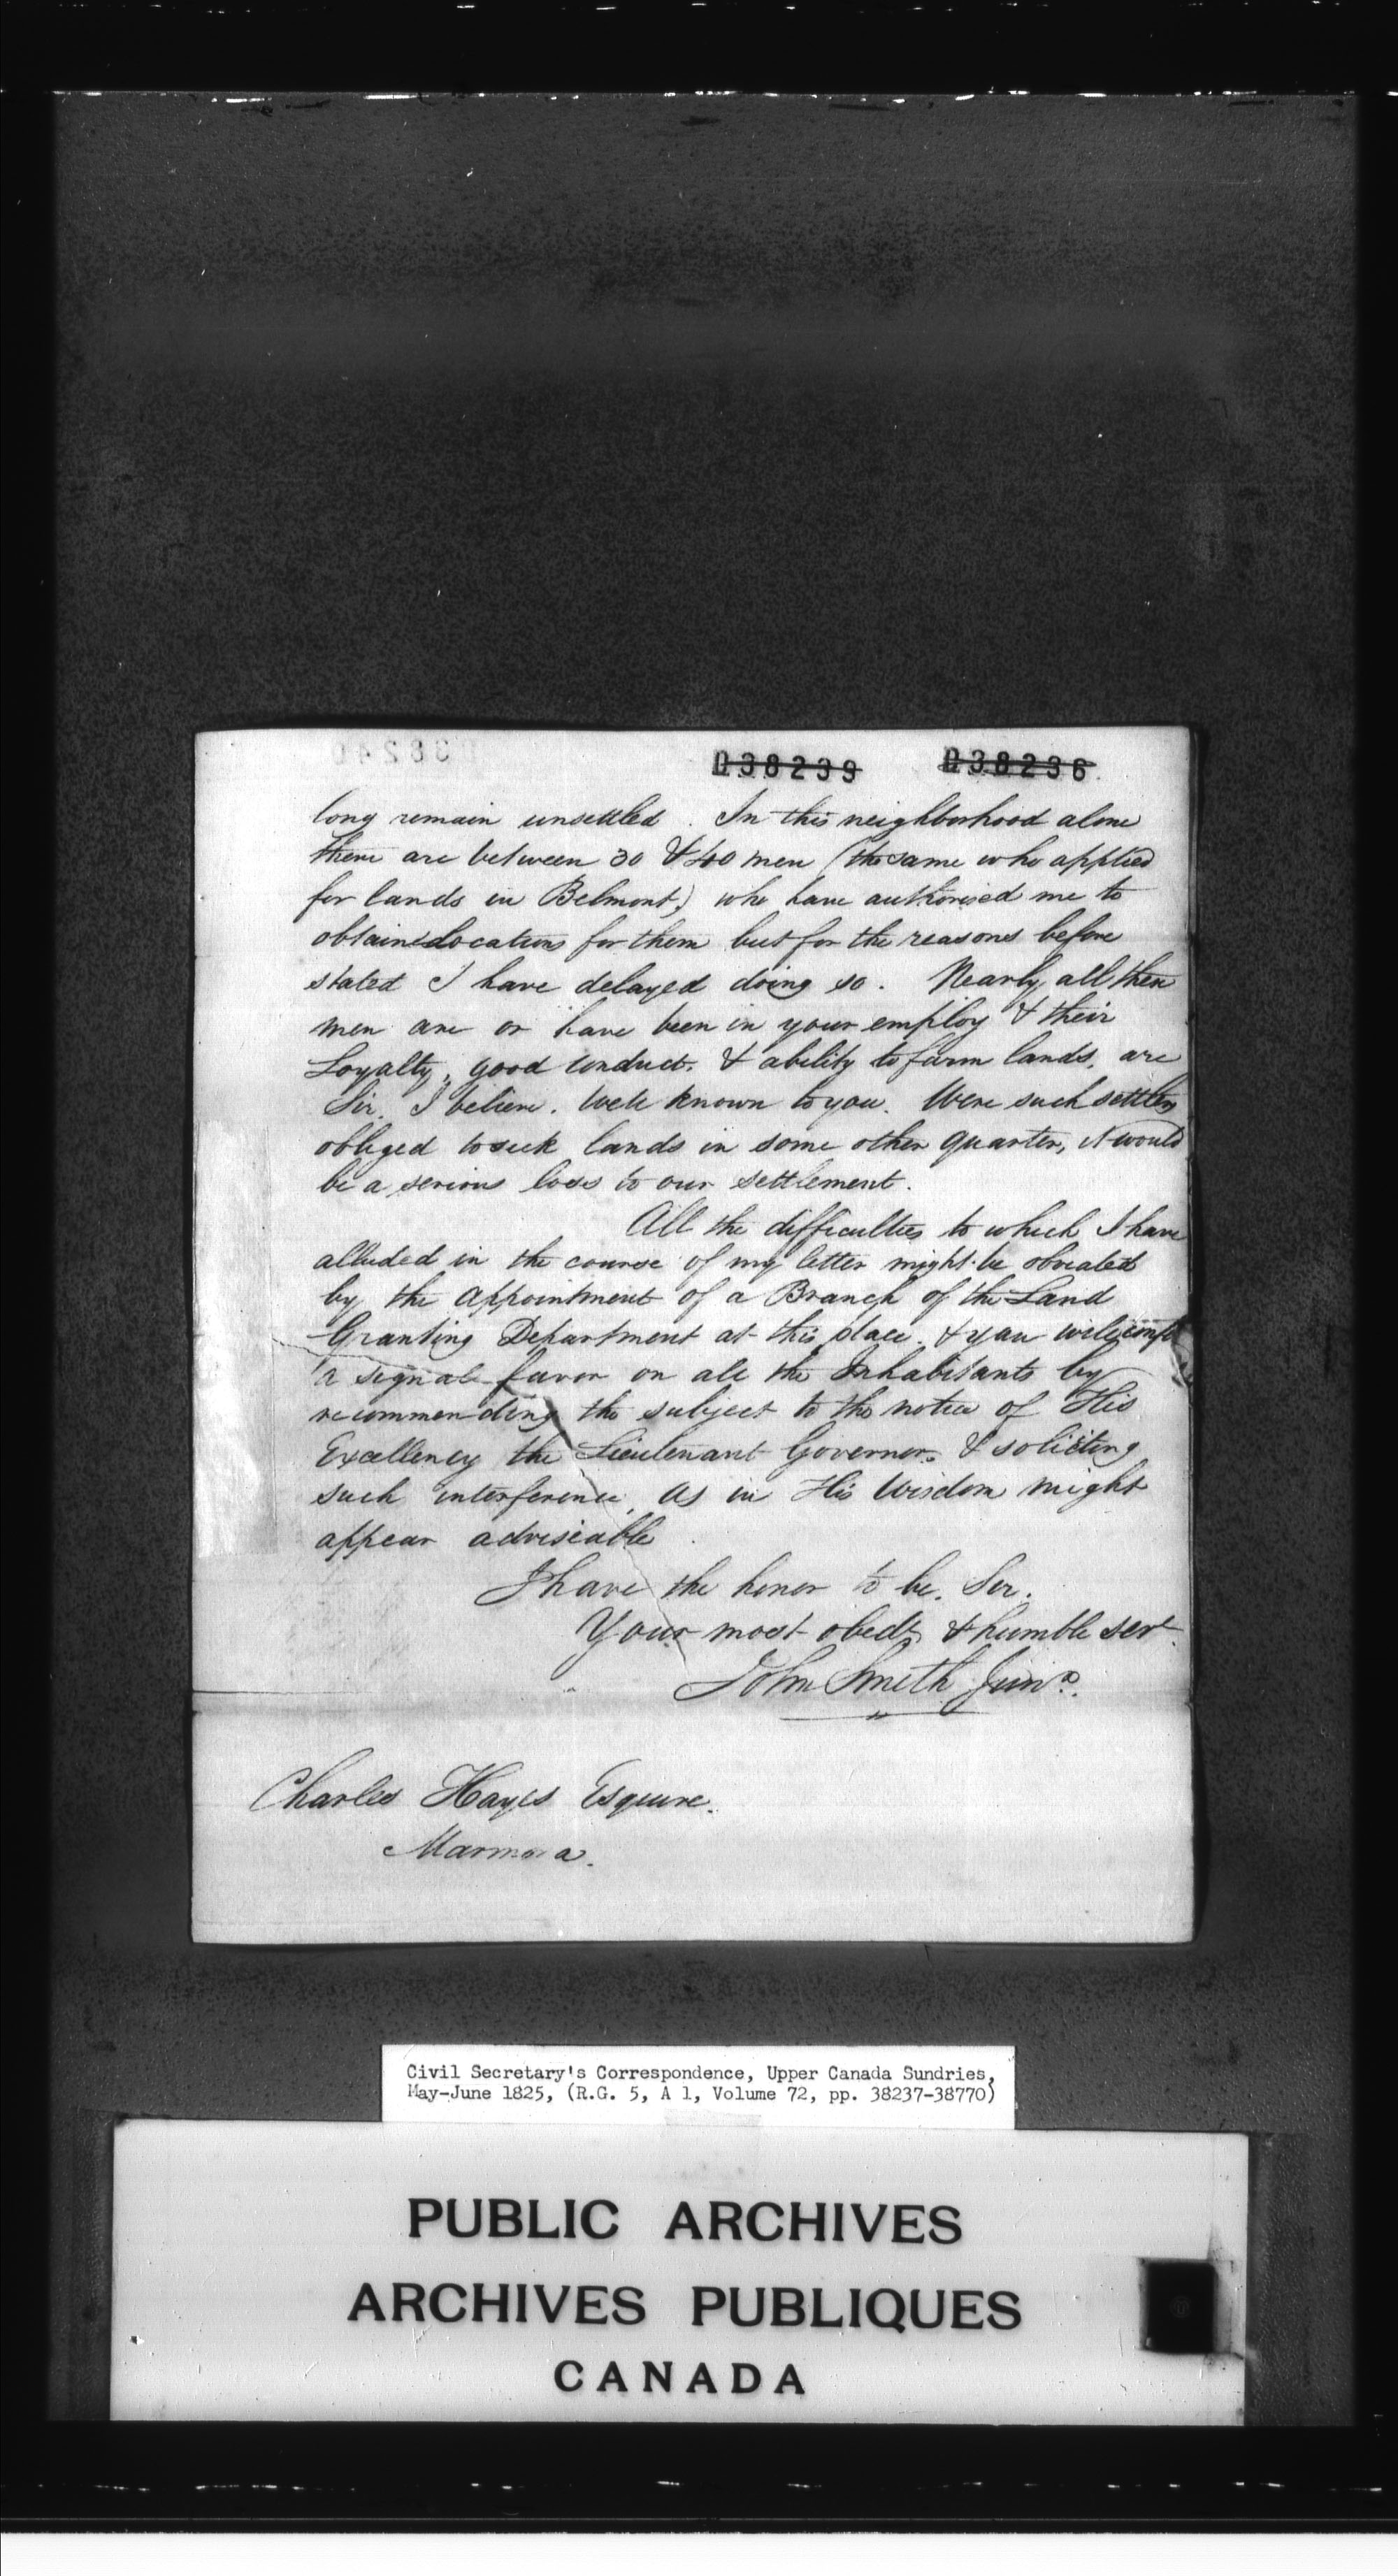 038239 038236
long remain unsettled. In this neighborhood alone
there are between 30 & 40 men (the same who applied
for lands in Belmont,) who have authorised me to
obtain locations for them but for the reasons before
stated I have delayed doing so. Nearly all these
men are or have been in your employ & their
Loyalty, good conduct, & ability to farm lands, are
Sir, I believe, well known to you. Were such settlers
obliged to seek lands in some other quarter, it would
be a serious loss to our settlement.
All the difficulties to which I have
alluded in the course of my letter might be obviated
by the appointment of a Branch of the Land
Granting Department at this place. & you will confer
a signal favor on all the Inhabitants by
recommending the subject to the notice of His
Excellency the Lieutenant Governor. & soliciting
such interference, as in His Wisdom might
appear adviseable.
I have the honor to be, Sir.
Your most obedt. & humble servt.
John Smith Junr.
Charles Hayes Esquire.
Marmora.
Civil Secretary's Correspondence, Upper Canada Sundries,
May-June 1825, (R.G. 5, A 1, Volume 72, pp. 38237-38770)
PUBLIC ARCHIVES
ARCHIVES PUBLIQUES
CANADA